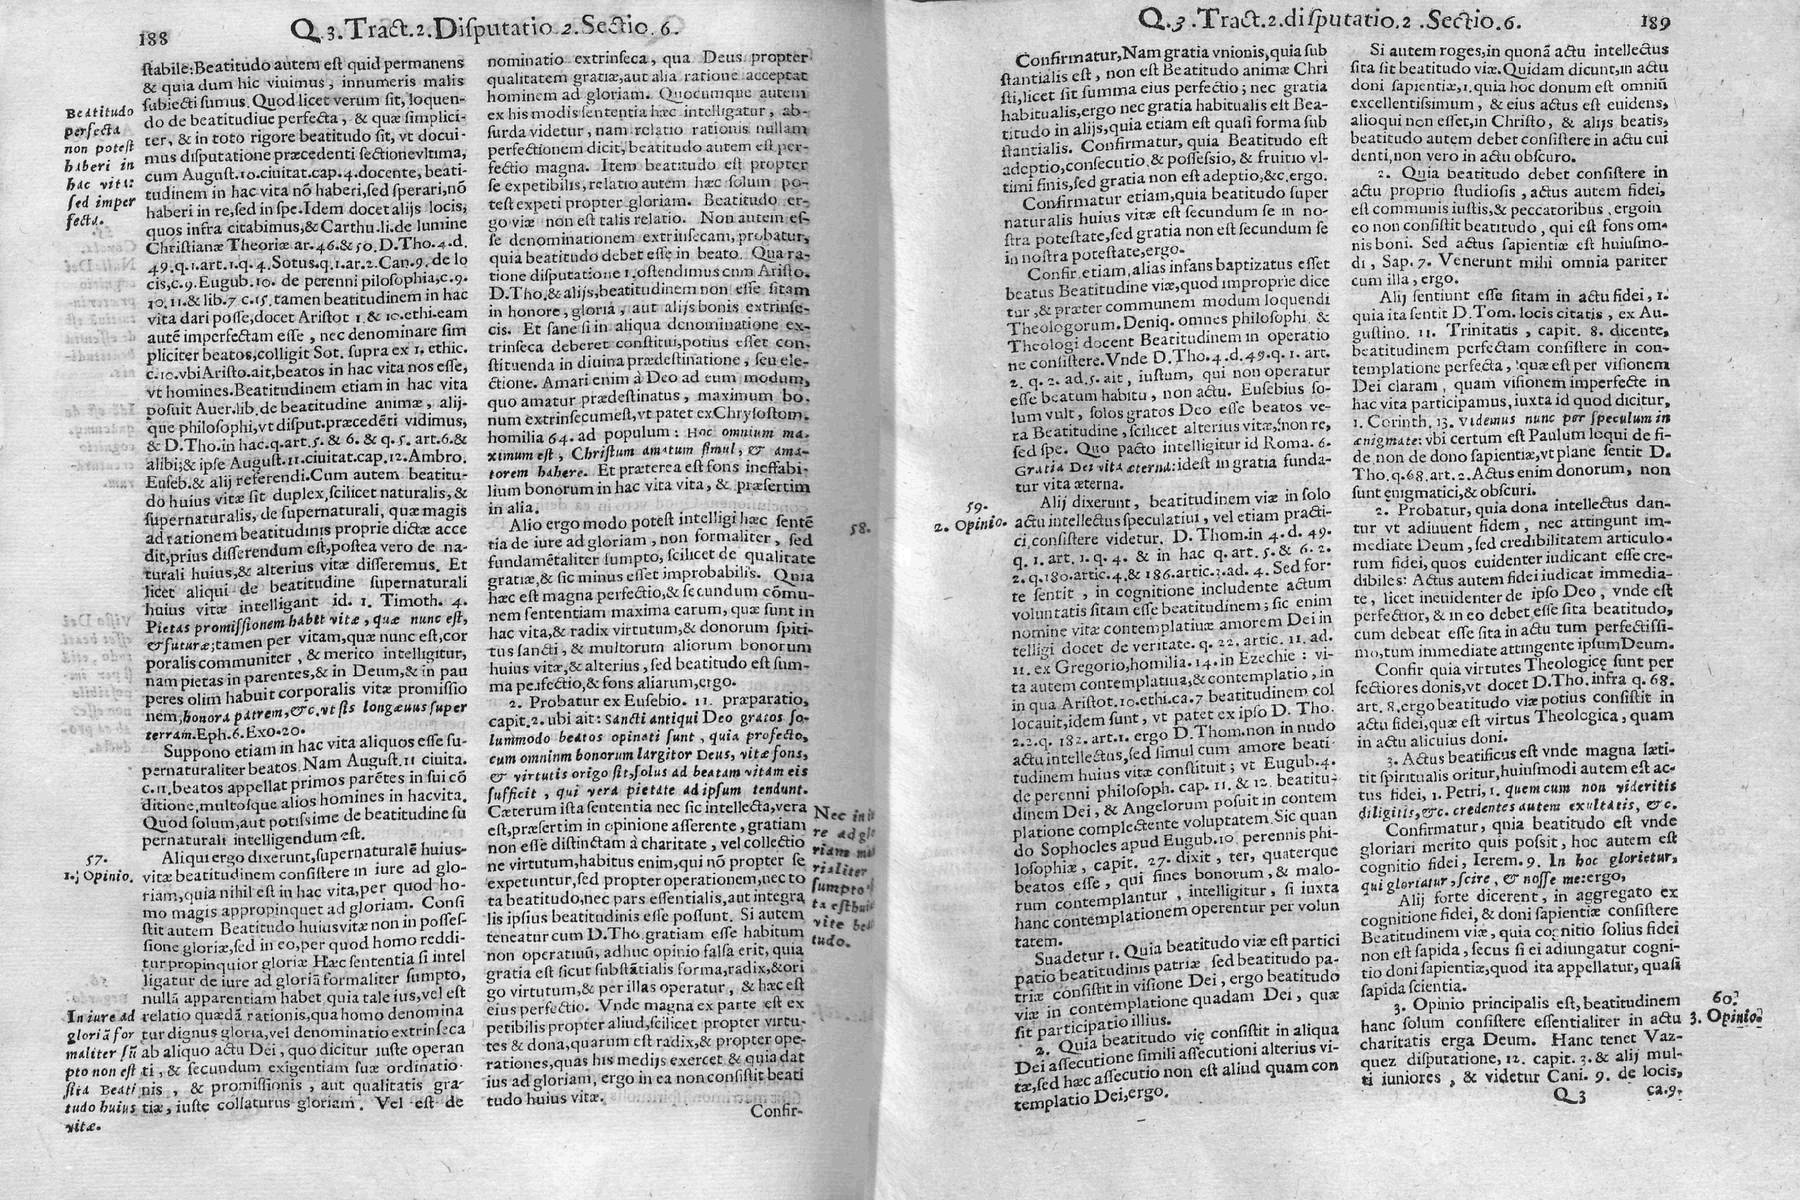 188
Q.3.Tract.2.Disputatio.2.Sectio.6.
ſtabile:Beatitudo autem eſt quid permanens
& quia dum hic viuimus, innumeris malis
ſubiecti ſumus. Quod licet verum ſit, loquen-
do de beatitudine perfecta, & quæ ſimplici-
ter, & in toto rigore beatitudo ſit, vt docui-
mus diſputatione præcedenti ſectione vltima,
cum Auguſt.10.ciuitat.cap.4.docente, beati-
tudinem in hac vita nõ haberi,ſed ſperari,nõ
haberi in re,ſed in ſpe.Idem docet alijs locis,
quos infra citabimus,& Carthu.li.de lumine
Chriſtianæ Theoriæ ar.46.& 50.D.Tho.4.d.
49.q.1.art.1.q.4.Sotus.q.1.ar.2.Can.9.de lo
cis,c.9.Eugub.10. de perenni piloſophia,c.9.
10.11.& lib.7 c.15. tamen beatitudinem in hac
vita dari poſſe,docet Ariſtot 1.& 10.ethi.eam
autẽ imperfectam eſſe, nec denominare ſim
pliciter beatos,colligit Sot. ſupra ex 1. ethic.
c.10.vbi Ariſto.ait,beatos in hac vita nos eſſe,
vt homines.Beatitudinem etiam in hac vita
poſuit Auer.lib.de beatitudine animæ, alij-
que philoſophi,vt diſput.præcedẽti vidimus,
& D.Tho.in hac.q.art.5.& 6. & q.5. art.6.&
alibi;& ipſe Auguſt.11.ciuitat.cap.12.Ambro.
Euſeb.& alij referendi.Cum autem beatitu-
do huius vitæ ſit duplex,ſcilicet naturalis,&
ſupernaturalis, de ſupernaturali, quæ magis
ad rationem beatitudinis proprie dictæ acce
dit,prius diſſerendum eſt,poſtea vero de na-
turali huius,& alterius vitæ diſſeremus. Et
licet aliqui de beatitudine ſupernaturali
huius vitæ intelligant id. 1. Timoth. 4.
Pietas promiſſionem habet vitæ, quæ nunc eſt,
& futuræ;tamen per vitam,quæ nunc eſt,cor
poralis communiter, & merito intelligitur,
nam pietas in parentes,& in Deum,& in pau
peres olim habuit corporalis vitæ promiſſio
nem,honora patrem,&c.vt ſis longæuus ſuper
terram.Eph.6.Exo.20.
Suppono etiam in hac vita aliquos eſſe ſu-
pernaturaliter beatos. Nam Auguſt.11 ciuita.
c.11.beatos appellat primos parẽtes in ſui cõ
ditione,multoſque alios homines in hac vita.
Quod ſolum,aut potiſsime de beatitudine ſu
pernaturali intelligendum eſt.
Aliqui ergo dixerunt,ſupernaturalẽ huius
vitæ beatitudinem conſiſtere in iure ad glo-
riam,quia nihil eſt in hac vita,per quod ho-
mo magis appropinquet ad gloriam. Conſi
ſtit autem Beatitudo huius vitæ non in poſſeſ-
ſione gloriæ,ſed in eo,per quod homo reddi-
tur propinquior gloriæ Hæc ſententia ſi intel
ligatur de iure ad gloriã formaliter ſumpto,
nullã apparentiam habet quia tale ius,vel eſt
relatio quædã rationis,qua homo denomina
tur dignus gloria,vel denominatio extrinſeca
ab aliquo actu Dei, quo dicitur iuſte operan
ti, & ſecundum exigentiam ſuæ ordinatio-
nis, & promiſſionis, aut qualitatis gra-
tiæ, iuſte collaturus gloriam. Vel eſt de
Beatitudo
perfecta
non poteſt
haberi in
hac vita:
ſed imper
fecta.
57.
1. Opinio.
In iure ad
gloriã for
maliter ſũ
pto non eſt
ſita Beati
tudo huius
vitæ.
nominatio extrinſeca, qua Deus propter
qualitatem gratiæ,aut alia ratione acceptat
hominem ad gloriam. Quocumque autem
ex his modis ſententia hæc intelligatur, ab-
ſurda videtur, nam relatio rationis nullam
perfectionem dicit, beatitudo autem eſt per-
fectio magna. Item beatitudo eſt propter
ſe expetibilis, relatio autem hæc ſolum po-
teſt expeti propter gloriam. Beatitudo er-
go viæ non eſt talis relatio. Non autem eſ-
ſe denominationem extrinſecam, probatur,
quia beatitudo debet eſſe in beato. Qua ra-
tione diſputatione 1.oſtendimus cum Ariſto.
D.Tho.& alijs,beatitudinem non eſſe ſitam
in honore, gloria, aut alijs bonis extrinſe-
cis. Et ſane ſi in aliqua denominatione ex-
trinſeca deberet conſtitui,potius eſſet con-
ſtituenda in diuina prædeſtinatione, ſeu ele-
ctione. Amari enim à Deo ad eum modum,
quo amatur prædeſtinatus, maximum bo-
num extrinſecum eſt,vt patet ex Chryſoſtom.
homilia 64. ad populum: Hoc omnium ma-
ximum eſt, Chriſtum amatum ſimul, & ama-
torem habere. Et præterea eſt fons ineffabi-
lium bonorum in hac vita vita, & præſertim
in alia.
Alio ergo modo poteſt intelligi hæc ſentẽ
tia de iure ad gloriam, non formaliter, ſed
fundamẽtaliter ſumpto, ſcilicet de qualitate
gratiæ,& ſic minus eſſet improbabilis. Quia
hæc eſt magna perfectio,& ſecundum cõmu-
nem ſententiam maxima earum, quæ ſunt in
hac vita,& radix virtutum,& donorum ſpiti-
tus ſancti, & multorum aliorum bonorum
huius vitæ,& alterius, ſed beatitudo eſt ſum-
ma perfectio,& fons aliarum,ergo.
2. Probatur ex Euſebio. 11. præparatio,
capit.2. ubi ait: Sancti antiqui Deo gratos ſo-
lummodo beatos opinati ſunt, quia profecto,
cum omninm bonorum largitor Deus, vitæ fons,
& virtutis origo ſit,ſolus ad beatam vitam eis
ſufficit, qui vera pietate ad ipſum tendunt.
Cæterum iſta ſententia nec ſic intellecta,vera
eſt,præſertim in opinione aſſerente, gratiam
non eſſe diſtinctam à charitate, vel collectio
ne virtutum,habitus enim,qui nõ propter ſe
expetuntur,ſed propter operationem,nec to
ta beatitudo,nec pars eſſentialis,aut integra
lis ipſius beatitudinis eſſe poſſunt. Si autem
teneatur cum D.Tho. gratiam eſſe habitum
non operatiuũ, adhuc opinio falſa erit, quia
gratia eſt ſicut ſubſtãtialis forma,radix,& ori
go virtutum,& per illas operatur, & hæc eſt
eius perfectio. Vnde magna ex parte eſt ex
petibilis propter aliud,ſcilicet propter virtu-
tes & dona,quarum eſt radix,& propter ope-
rationes,quas his medijs exercet & quia dat
ius ad gloriam, ergo in ea non conſiſtit beati
tudo huius vitæ.
58.
Nec in iu
re ad glo
riam ma
rialiter
ſumpto
ta eſt hui
vitæ bea
tudo.
Confir-
Q.3.Tract.2.diſputatio.2.Sectio.6.
189
Confirmatur,Nam gratia vnionis,quia ſub
ſtantialis eſt, non eſt Beatitudo animæ Chri
ſti,licet ſit ſumma eius perfectio; nec gratia
habitualis,ergo nec gratia habitualis eſt Bea-
titudo in alijs,quia etiam eſt quaſi forma ſub
ſtantialis. Confirmatur, quia Beatitudo eſt
adeptio,conſecutio,& poſſeſsio,& fruitio vl-
timi finis,ſed gratia non eſt adeptio,&c.ergo.
Confirmatur etiam,quia beatitudo ſuper
naturalis huius vitæ eſt ſecundum ſe in no-
ſtra poteſtate,ſed gratia non eſt ſecundum ſe
in noſtra poteſtate,ergo.
Confir.etiam,alias infans baptizatus eſſet
beatus Beatitudine viæ,quod improprie dice
tur,& præter communem modum loquendi
Theologorum.Deniq. omnes philoſophi &
Theologi docent Beatitudinem in operatio
ne conſiſtere.Vnde D.Tho.4.d.49.q.1.art.
2.q.2.ad.5.ait, iuſtum, qui non operatur
eſſe beatum habitu, non actu. Euſebius ſo-
lum vult, ſolos gratos Deo eſſe beatos ve-
ra Beatitudine, ſcilicet alterius vitæ,non re,
ſed ſpe. Quo pacto intelligitur id Roma. 6.
Gratia Dei vita æterna:ideſt in gratia funda-
tur vita æterna.
Alij dixerunt, beatitudinem viæ in ſolo
actu intellectus ſpeculatiui, vel etiam practi-
ci,conſiſtere videtur. D.Thom.in 4.d.49.
q.1.art.1.q.4. & in hac q.art.5.& 6.2.
2.q.180.artic.4.& 186.artic.3.ad.4.Sed for-
te ſentit, in cognitione includente actum
voluntatis ſitam eſſe beatitudinem; ſic enim
nomine vitæ contemplatiuæ amorem Dei in
telligi docet de veritate.q.22.artic.11.ad.
11.ex Gregorio,homilia.14.in Ezechie: vi-
ta autem contemplatiua,& contemplatio, in
in qua Ariſtot.10.ethi.ca.7 beatitudinem col
locauit,idem ſunt, vt patet ex ipſo D.Tho.
2.2.q.182.art.1.ergo D.Thom.non in nudo
actu intellectus,ſed ſimul cum amore beati-
tudinem huius vitæ conſtituit; vt Eugub.4.
de perenni philoſoph.cap.11.& 12.beatitu-
dinem Dei,& Angelorum poſuit in contem
platione complectente voluptatem.Sic quan
do Sophocles apud Eugub.10.perennis phi-
loſophiæ, capit. 27. dixit, ter, quaterque
beatos eſſe, qui fines bonorum, & malo-
rum contemplantur, intelligitur, ſi iuxta
hanc contemplationem operentur per volun
tatem.
Suadetur 1. Quia beatitudo viæ eſt partici
patio beatitudinis patriæ,ſed beatitudo pa-
triæ conſiſtit in viſione Dei, ergo beatitudo
viæ in contemplatione quadam Dei, quæ
ſit participatio illius.
2. Quia beatitudo vię conſiſtit in aliqua
Dei aſſecutione ſimili aſſecutioni alterius vi-
tæ,ſed hæc aſſecutio non eſt aliud quam con
templatio Dei,ergo.
59.
2. Opinio.
Si autem roges,in quonã actu intellectus
ſita ſit beatitudo viæ.Quidam dicunt,in actu
doni ſapientiæ,1.quia hoc donum eſt omniũ
excellentiſſimum, & eius actus eſt euidens,
alioqui non eſſet,in Chriſto, & alijs beatis,
beatitudo autem debet conſiſtere in actu eui
denti,non vero in actu obſcuro.
2. Quia beatitudo debet conſiſtere in
actu proprio ſtudioſis, actus autem fidei,
eſt communis iuſtis,& peccatoribus, ergo in
eo non conſiſtit beatitudo, qui eſt fons om-
nis boni. Sed actus ſapientiæ eſt huiuſmo-
di, Sap. 7. Venerunt mihi omnia pariter
cum illa, ergo.
Alij ſentiunt eſſe ſitam in actu fidei, 1.
quia ita ſentit D.Tom. locis citatis, ex Au-
guſtino. 11. Trinitatis, capit. 8. dicente,
beatitudinem perfectam conſiſtere in con-
templatione perfecta, quæ eſt per viſionem
Dei claram, quam viſionem imperfecte in
hac vita participamus, iuxta id quod dicitur,
1. Corinth. 13. Videmus nunc per ſpeculum in
ænigmate: vbi certum eſt Paulum loqui de fi-
de,non de dono ſapientiæ,vt plane ſentit D.
Tho.q.68.art.2.Actus enim donorum, non
ſunt ęnigmatici,& obſcuri.
2. Probatur, quia dona intellectus dan-
tur vt adiuuent fidem, nec attingunt im-
mediate Deum, ſed credibilitatem articulo-
rum fidei, quos euidenter iudicant eſſe cre-
dibiles: Actus autem fidei iudicat immedia-
te, licet ineuidenter de ipſo Deo, vnde eſt
perfectior, & in eo debet eſſe ſita beatitudo,
cum debeat eſſe ſita in actu tum perfectiſſi-
mo,tum immediate attingente ipſum Deum.
Confir quia virtutes Theologicę ſunt per
fectiores donis,vt docet D.Tho.infra q.68.
art.8.ergo beatitudo viæ potius conſiſtit in
actu fidei,quæ eſt virtus Theologica, quam
in actu alicuius doni.
3. Actus beatificus eſt vnde magna læti-
tit ſpiritualis oritur,huiuſmodi autem eſt ac-
tus fidei, 1. Petri, 1. quem cum non videritis
diligitis, &c. credentes autem exultatis, &c.
Confirmatur, qnia beatitudo eſt vnde
gloriari merito quis poſsit, hoc autem eſt
cognitio fidei, Ierem. 9. In hoc glorietur,
qui gloriatur, ſcire, & noſſe me:ergo,
Alij forte dicerent, in aggregato ex
cognitione fidei, & doni ſapientiæ conſiſtere
Beatitudinem viæ, quia cognitio ſolius fidei
non eſt ſapida, ſecus ſi ei adiungatur cogni-
tio doni ſapientiæ,quod ita appellatur, quaſi
ſapida ſcientia.
3. Opinio principalis eſt,beatitudinem
hanc ſolum conſiſtere eſſentialiter in actu
charitatis erga Deum. Hanc tenet Vaz-
quez diſputatione, 12. capit. 3. & alij mul-
ti iuniores, & videtur Cani. 9. de locis,
60.
3. Opinio.
Q3
ca.9.